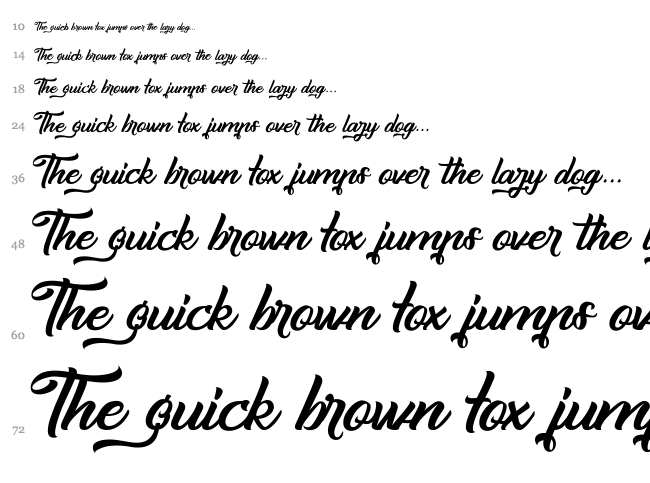 10 The quick brown fox jumps over the lazy dog...
14 The quick brown fox jumps over the lazy dog...
18 The quick brown fox jumps over the lazy dog...
24 The quick brown fox jumps over the lazy dog...
36 The quick brown fox jumps over the lazy dog...
48 The quick brown fox jumps over the
60 The quick brown fox jumps
72 The quick brown fox